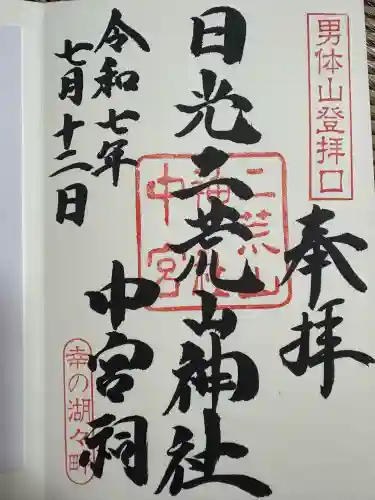 男体山登拝口
奉拝
日光二荒山神社
中宮祠
令和七年
七月十二日
二荒山
神社
中宮
幸の湖々畔